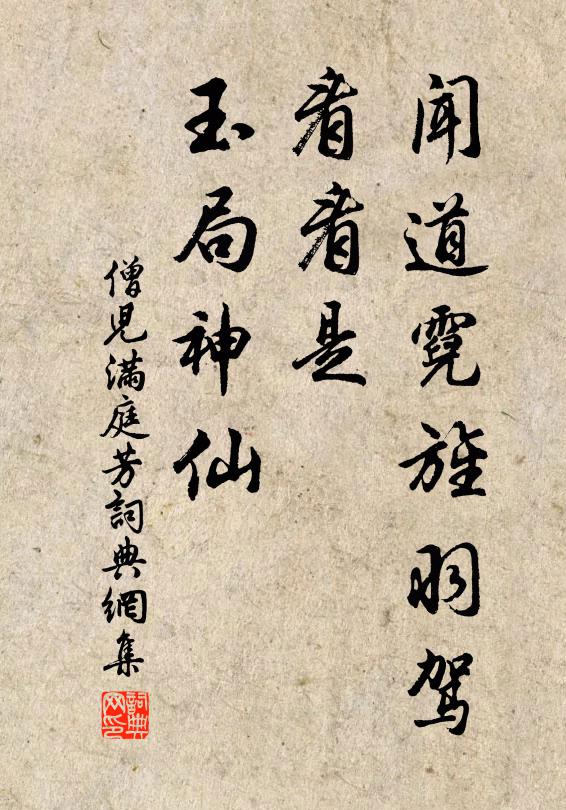 聞道霓旌羽駕
看看是
玉局神仙
僧兒滿庭芳詞典網集
詞典
网印